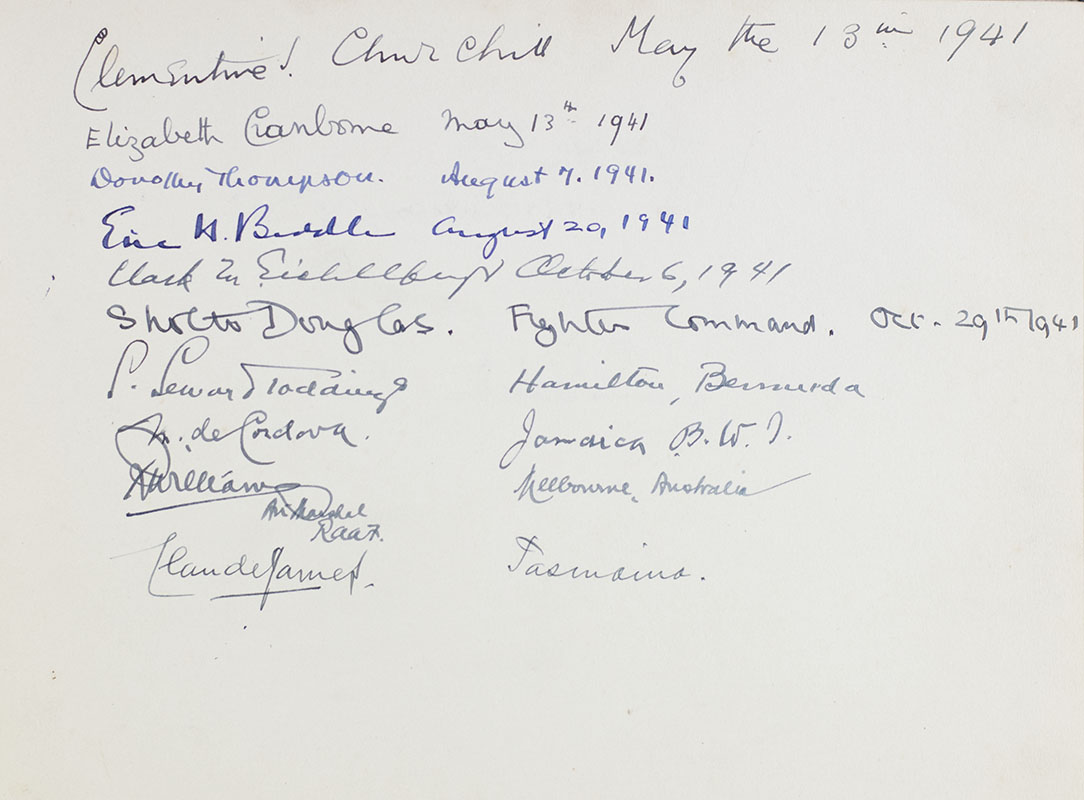 Clementine S. Churchill May the 13th 1941
Elizabeth Cranborne May 13th 1941
Dorothy Thompson. August 7. 1941.
Eric H. Biddle August 20, 1941
Clark M Eichelberger October 6, 1941
Sholto Douglas. Fighter Command. Oct. 29th 1941
S. Seward Toddings Hamilton, Bermuda
M. de Cordova. Jamaica B.W.I.
R Williams Melbourne, Australia
Air Marshal
RAAF.
Claude James. Tasmania.